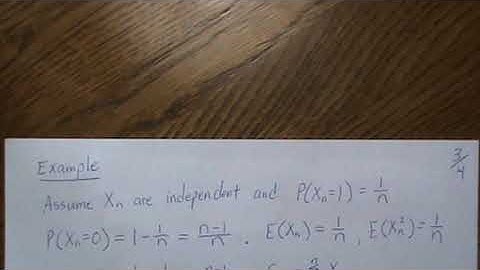 Example
3/4
Assume Xₙ are independent and P(Xₙ=1) = 1/n
P(Xₙ=0) = 1 - 1/n = n-1/n . E(Xₙ) = 1/n , E(Xₙ²) = 1/n